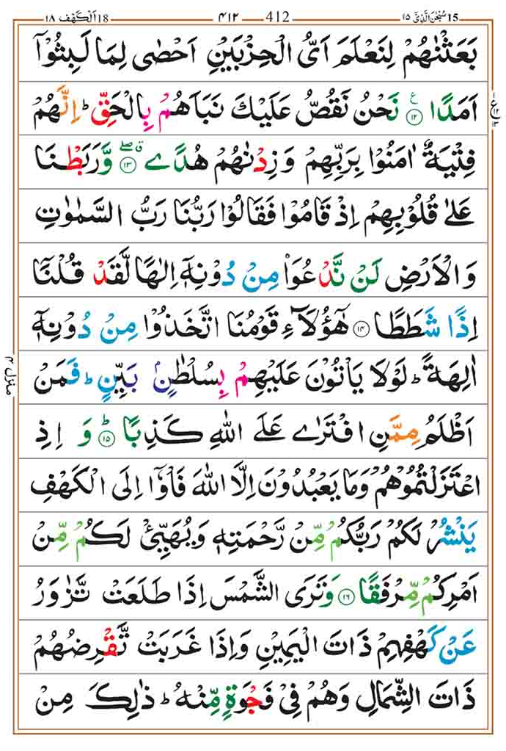 15 سُبْحٰنَ الَّذِيْٓ ١٥ 412 ٤١٢ 18 اَلْكَهْف ١٨
بَعَثْنٰهُمْ لِنَعْلَمَ اَىُّ الْحِزْبَيْنِ اَحْصٰى لِمَا لَبِثُوْٓا
اَمَدًا ۝١٢ نَحْنُ نَقُصُّ عَلَيْكَ نَبَاَهُمْ بِالْحَقِّ ؕ اِنَّهُمْ
فِتْيَةٌ اٰمَنُوْا بِرَبِّهِمْ وَزِدْنٰهُمْ هُدًى ۝١٣ وَّرَبَطْنَا
عَلٰى قُلُوْبِهِمْ اِذْ قَامُوْا فَقَالُوْا رَبُّنَا رَبُّ السَّمٰوٰتِ
وَالْاَرْضِ لَنْ نَّدْعُوَا۟ مِنْ دُوْنِهٖٓ اِلٰهًا لَّقَدْ قُلْنَآ
اِذًا شَطَطًا ۝١٤ هٰٓؤُلَآءِ قَوْمُنَا اتَّخَذُوْا مِنْ دُوْنِهٖٓ
اٰلِهَةً ؕ لَوْلَا يَاْتُوْنَ عَلَيْهِمْ بِسُلْطٰنٍۭ بَيِّنٍ ؕ فَمَنْ
اَظْلَمُ مِمَّنِ افْتَرٰى عَلَى اللّٰهِ كَذِبًا ۝١٥ؕ وَاِذِ
اعْتَزَلْتُمُوْهُمْ وَمَا يَعْبُدُوْنَ اِلَّا اللّٰهَ فَاْوٗٓا اِلَى الْكَهْفِ
يَنْشُرْ لَكُمْ رَبُّكُمْ مِّنْ رَّحْمَتِهٖ وَيُهَيِّئْ لَكُمْ مِّنْ
اَمْرِكُمْ مِّرْفَقًا ۝١٦ وَتَرَى الشَّمْسَ اِذَا طَلَعَتْ تَّزٰوَرُ
عَنْ كَهْفِهِمْ ذَاتَ الْيَمِيْنِ وَاِذَا غَرَبَتْ تَّقْرِضُهُمْ
ذَاتَ الشِّمَالِ وَهُمْ فِيْ فَجْوَةٍ مِّنْهُ ؕ ذٰلِكَ مِنْ
منزل ٤